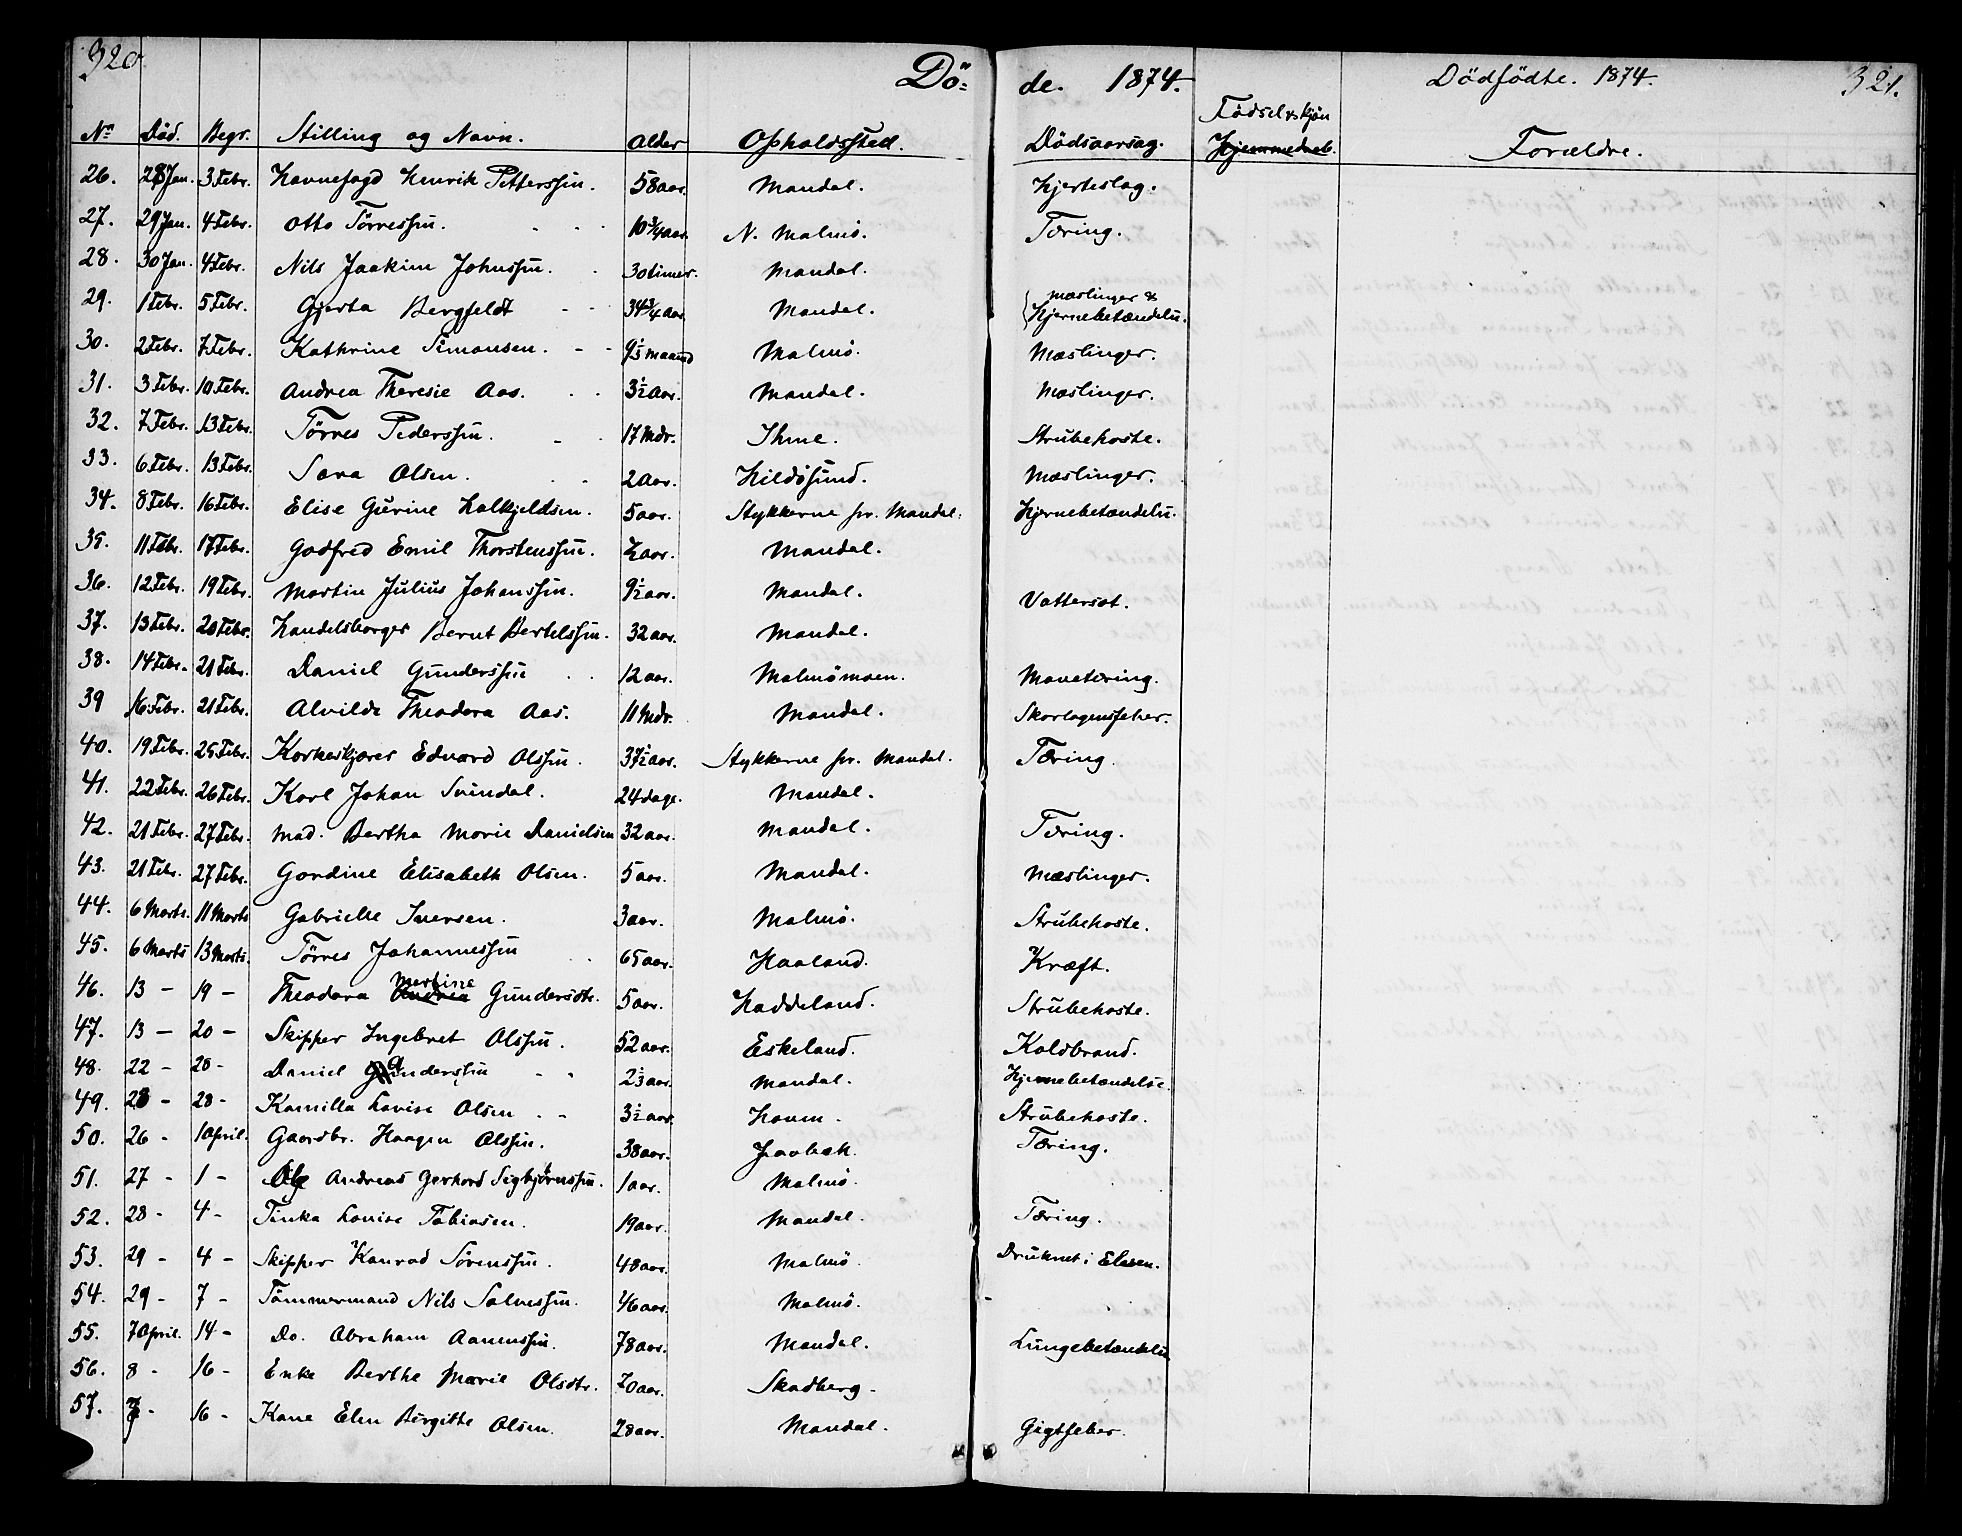 320.
Dö-
de. 1874.
Dödfödte. 1874.
321.
No Död. Begr. Stilling og Navn. Alder Opholdssted. Dödsaarsag. Födsel og Kjön Hjemmedøb. Forældre.
26. 28 Jan. 3 Febr. Havnefogd Henrik Petterssøn. 58 aar. Mandal. Hjerteslag.
27. 29 Jan. 4 Febr. Otto Törressøn. 10 3/4 aar. N. Malmö. Tæring.
28. 30 Jan. 4 Febr. Nils Joakim Johnssøn. 30 timer. Mandal.
29. 1 Febr. 5 Febr. Gjerta Bergfeldt 34 3/4 aar. Mandal. Mæslinger & Hjernebetændelse.
30. 2 Febr. 7 Febr. Kathrine Simonsen. Maaned Malmö. Mæslinger.
31. 3 Febr. 10 Febr. Andrea Theresie Aas. 3 1/2 aar. Mandal. Mæslinger.
32. 7 Febr. 13 Febr. Törres Pederssøn. 17 Mdr. Ihme. Strubehoste.
33. 6 Febr. 13 Febr. Sara Olsen. 2 aar. Hildösund. Mæslinger.
34. 8 Febr. 16 Febr. Elise Gurine Halkjeldsen. 5 aar. Stykkerne pr. Mandal. Hjernebetændelse.
35. 11 Febr. 17 Febr. Godfred Emil Thorstenssøn. 1/2 aar. Mandal.
36. 12 Febr. 19 Febr. Martin Julius Johanssøn. 9 1/2 aar. Mandal. Vattersot.
37. 13 Febr. 20 Febr. Handelsborger Bernt Bertelssøn. 32 aar. Mandal.
38. 14 Febr. 21 Febr. Daniel Gunderssøn 12 aar. Malmömoen. Mavetæring.
39 16 Febr. 21 Febr. Alvilde Theodora Aas. 11 Mdr. Mandal. Skarlagensfeber.
40. 19 Febr. 25 Febr. Korkeskjærer Edvard Olssøn. 37 1/2 aar. Stykkerne pr. Mandal. Tæring.
41. 22 Febr. 26 Febr. Karl Johan Svindal. 24 dage. Mandal.
42. 21 Febr. 27 Febr. Mad. Bertha Marie Danielsen 32 aar. Mandal. Tæring.
43. 21 Febr. 27 Febr. Gordine Elisabeth Olsen. 5 aar. Mandal. Mæslinger.
44. 6 Marts. 11 Marts Gabrielle Iversen. 3 aar. Malmö. Strubehoste.
45. 6 Marts 13 Marts. Törres Johannessøn 65 aar. Haaland. Kræft.
46. 13 - 19 - Theodora Andrea Martine Gundersdtr. 5 aar. Haddeland. Strubehoste.
47. 13 - 20 - Skipper Ingebret Olssøn. 52 aar. Eskeland. Koldbrand.
48. 22 - 28 - Daniel Gunderssøn 2 1/3 aar. Mandal. Hjernebetændelse.
49. 23 - 28 - Kamilla Lovise Olsen 3 1/2 aar. Homm. Strubehoste.
50. 26 - 1 April. Gaardbr. Haagen Olssøn. 38 aar. Tæring.
51. 27 - 1 - Ole Andreas Gerhard Sigbjörnssøn. 1 aar. Malmö.
52. 28 - 4 - Tinka Lovise Tobiasen. 19 aar. Mandal. Tæring.
53. 29 - 4 - Skipper Konrad Sörenssøn. 40 aar. Malmö. Druknet i Elven.
54. 29 - 7 - Tömmermand Nils Salvessøn. 46 aar. Malmö.
55. 7 April. 14 - Do. Abraham Aanenssøn. 78 aar. Mandal. Lungebetændelse
56. 8 - 16 - Enke Berthe Marie Olsdtr. 70 aar. Skadberg.
57. 7 - 16 - Kone Elen Birgitte Olsen. 28 aar. Mandal. Gigtfeber.